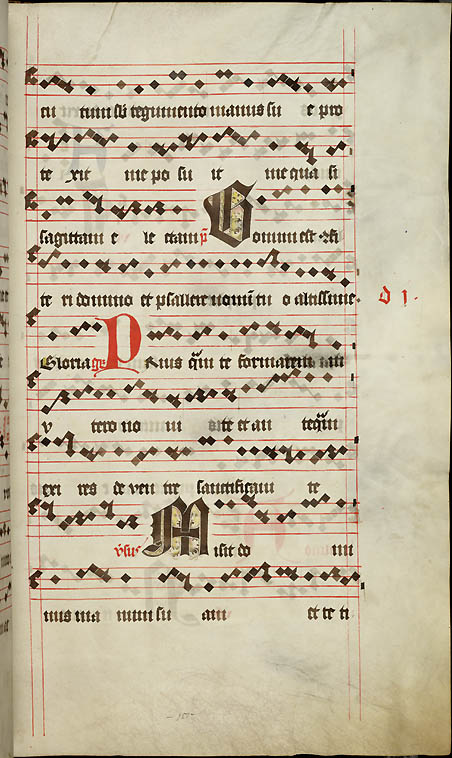 cu tum sub tegumento manus su e pro
te xit me po su it me qua si
sagittam e le ctam p̄ Bonum est ꝯfi
te ri domino et psallere nomini tu o altissime
d j.
Gloria gr̄ Prius q̄m te formarem in ut
v tero no ui te et an teq̄m
exi res de ven tre sanctificaui te
v̄sus Misit do mi
nus ma num su am et te ti